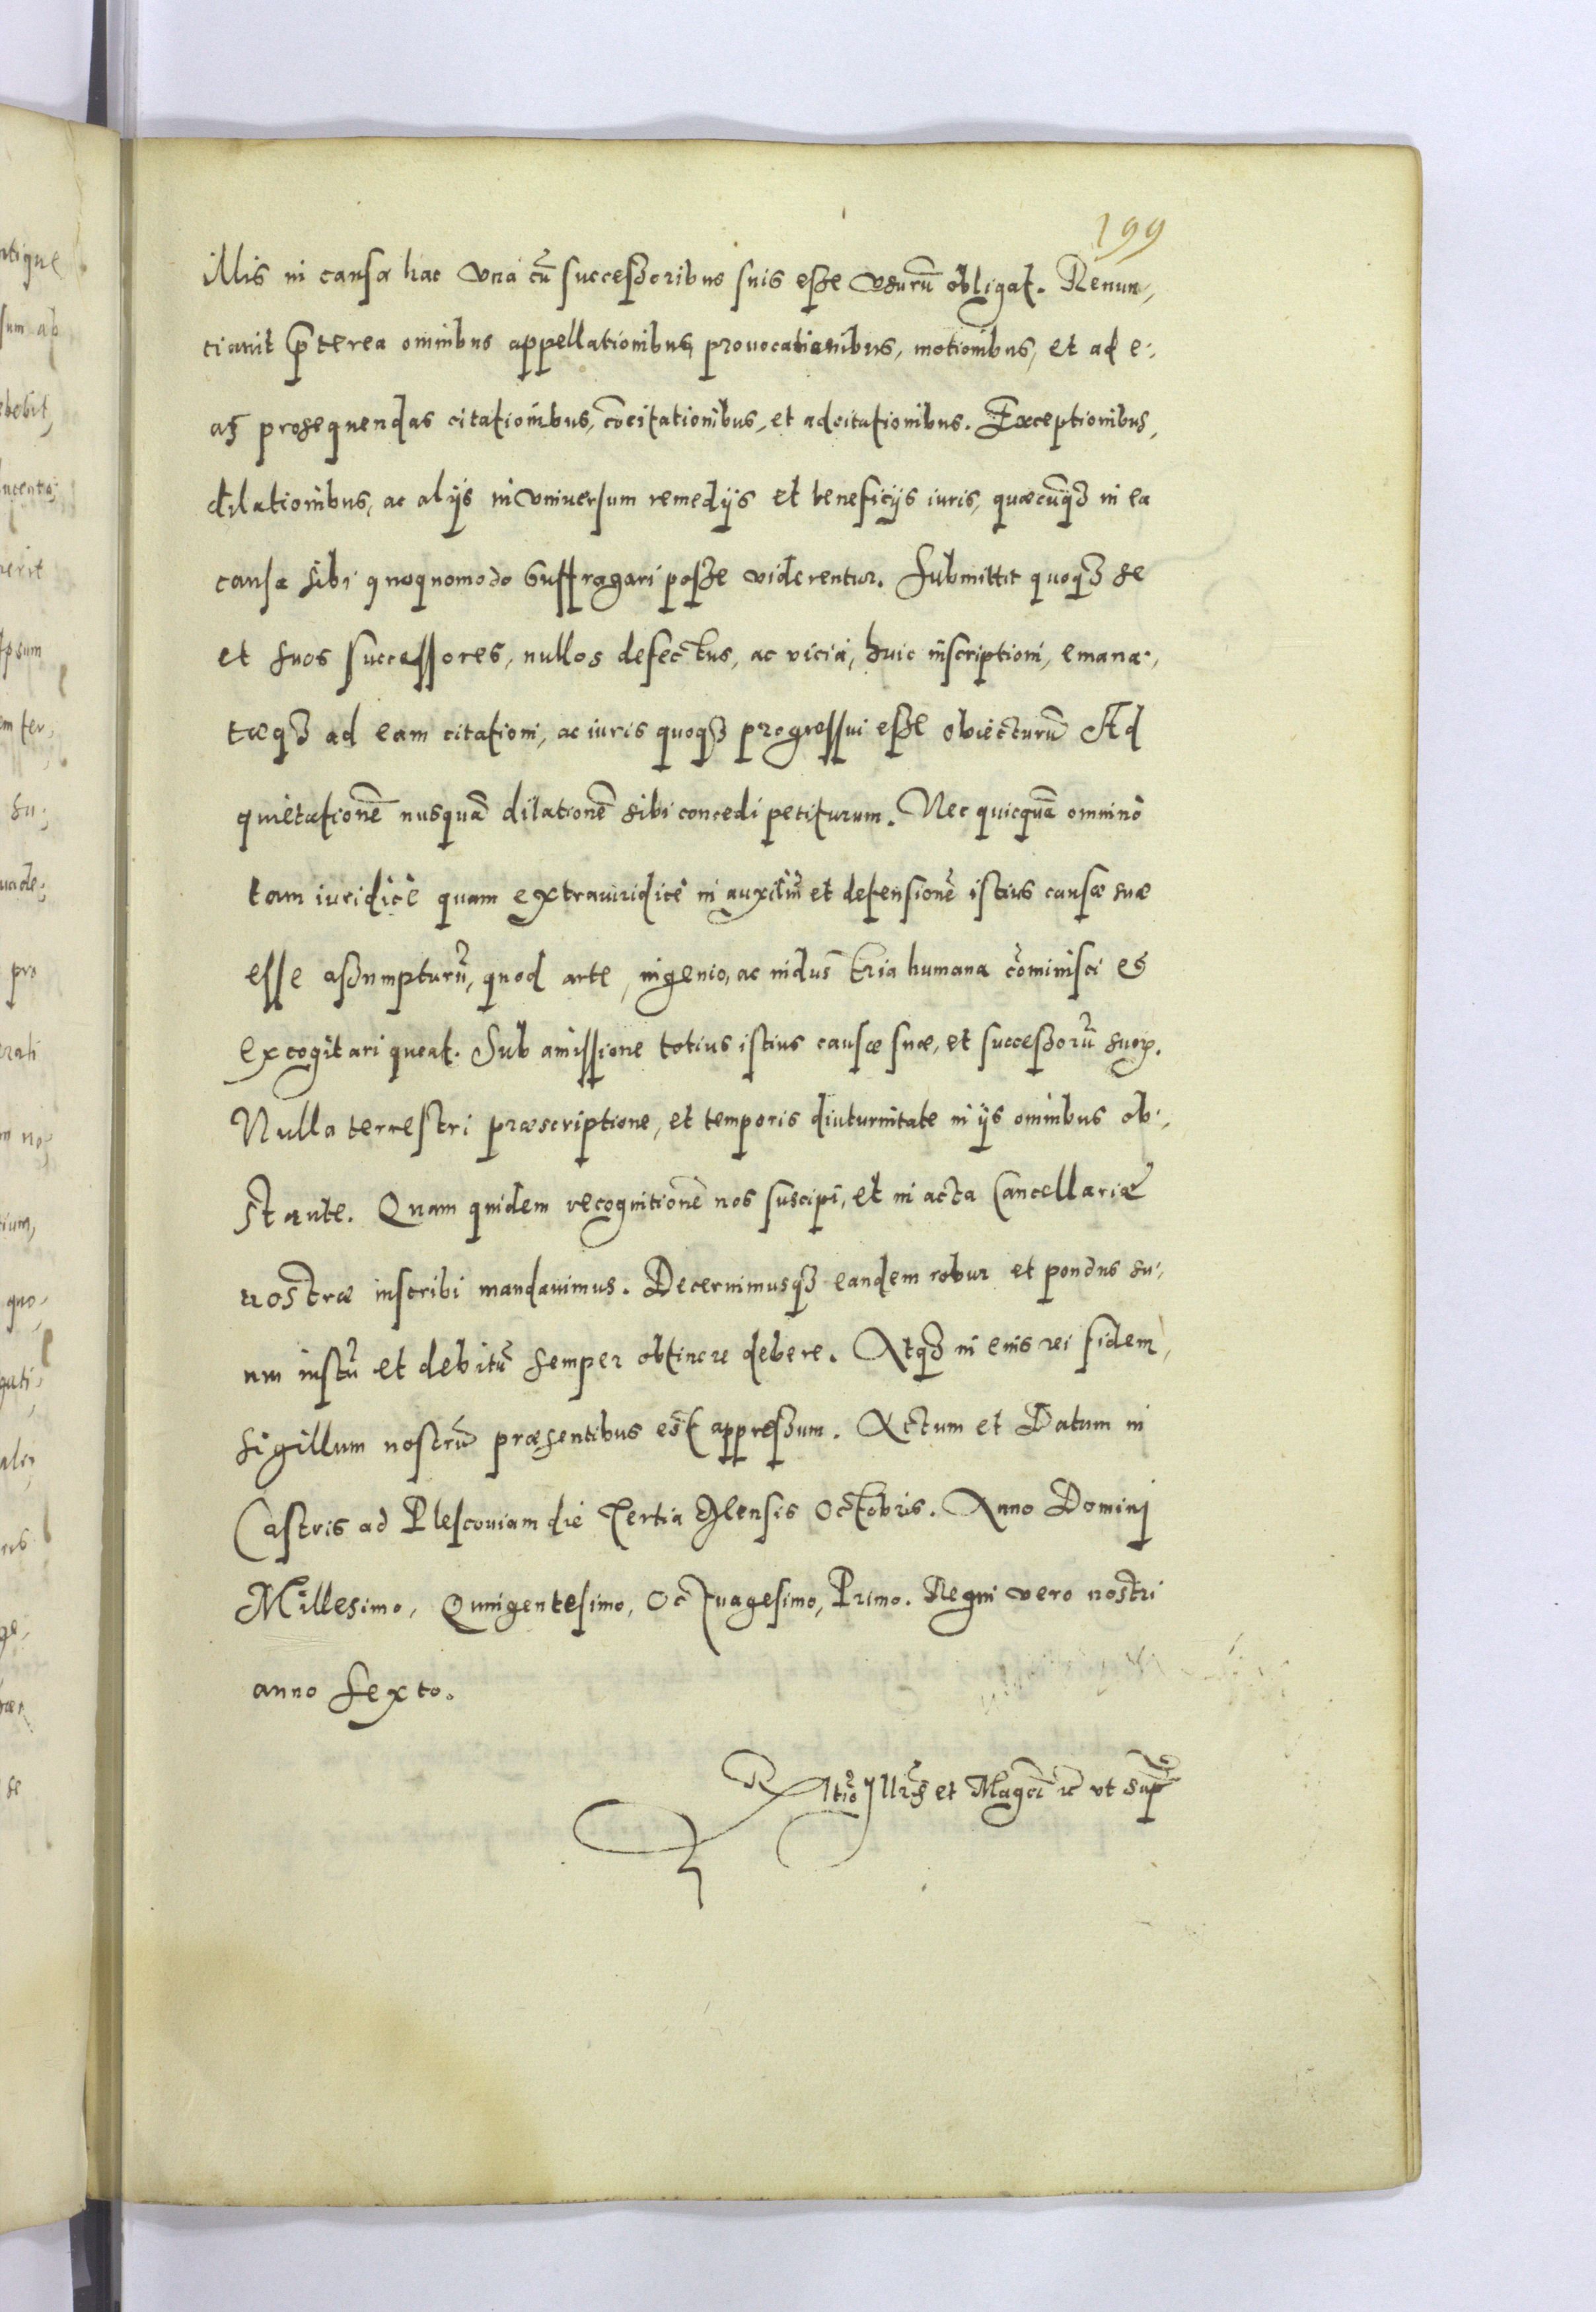 199
illis in causa hac vna cũ successoribus suis esse vsurũ obligat. Renun,
ciauit p̃terea omnibus appellationibus, prouocationibus, motionibus, et ad e,
as prosequendas citationibus, cõcitationibus, et adcitationibus. Exceptionibus,
dilationibus, ac alijs in vniuersum remedijs et beneficijs iuris, quæcũqꝫ in ea
causa sibi quoquomodo suffragari posse viderentur. Submittit quoqꝫ se
et suos successores, nullos defectus, ac vicia, huic inscriptioni, emana,
tæqꝫ ad eam citationi, ac iuris quoqꝫ progressui esse obiecturũ Ad
quietationẽ nusquã dilationẽ sibi concedi petiturum. Nec quicquã omnino
tam iuridicè quam extrauiridicè in auxiliũ et defensionẽ istius causæ suæ
esse assumpturũ, quod arte, ingenio, ac industria humana cõminisci et
excogitari queat. Sub amissione totius istius causæ suæ, et successorũ suoꝝ.
Nulla terrestri præscriptione, et temporis diuturnitate in ijs omnibus ob,
stante. Quam quidem recognitionẽ nos suscipi, et in acta Cancellariæ
nostræ inscribi mandauimus. Decernimusqꝫ eandem robur et pondus su,
um iustũ et debitũ semper obtinere debere. Atqꝫ in eius rei fidem,
sigillum nostrũ præsentibus est appressum. Actum et Datum in
Castris ad Plescouiam die Tertia Mensis Octobris. Anno Dominj
Millesimo, Quingentesimo, Octuagesimo, Primo. Regni vero nostri
anno sexto.
Rltio Illris et Magci ꝛc vt sup̃